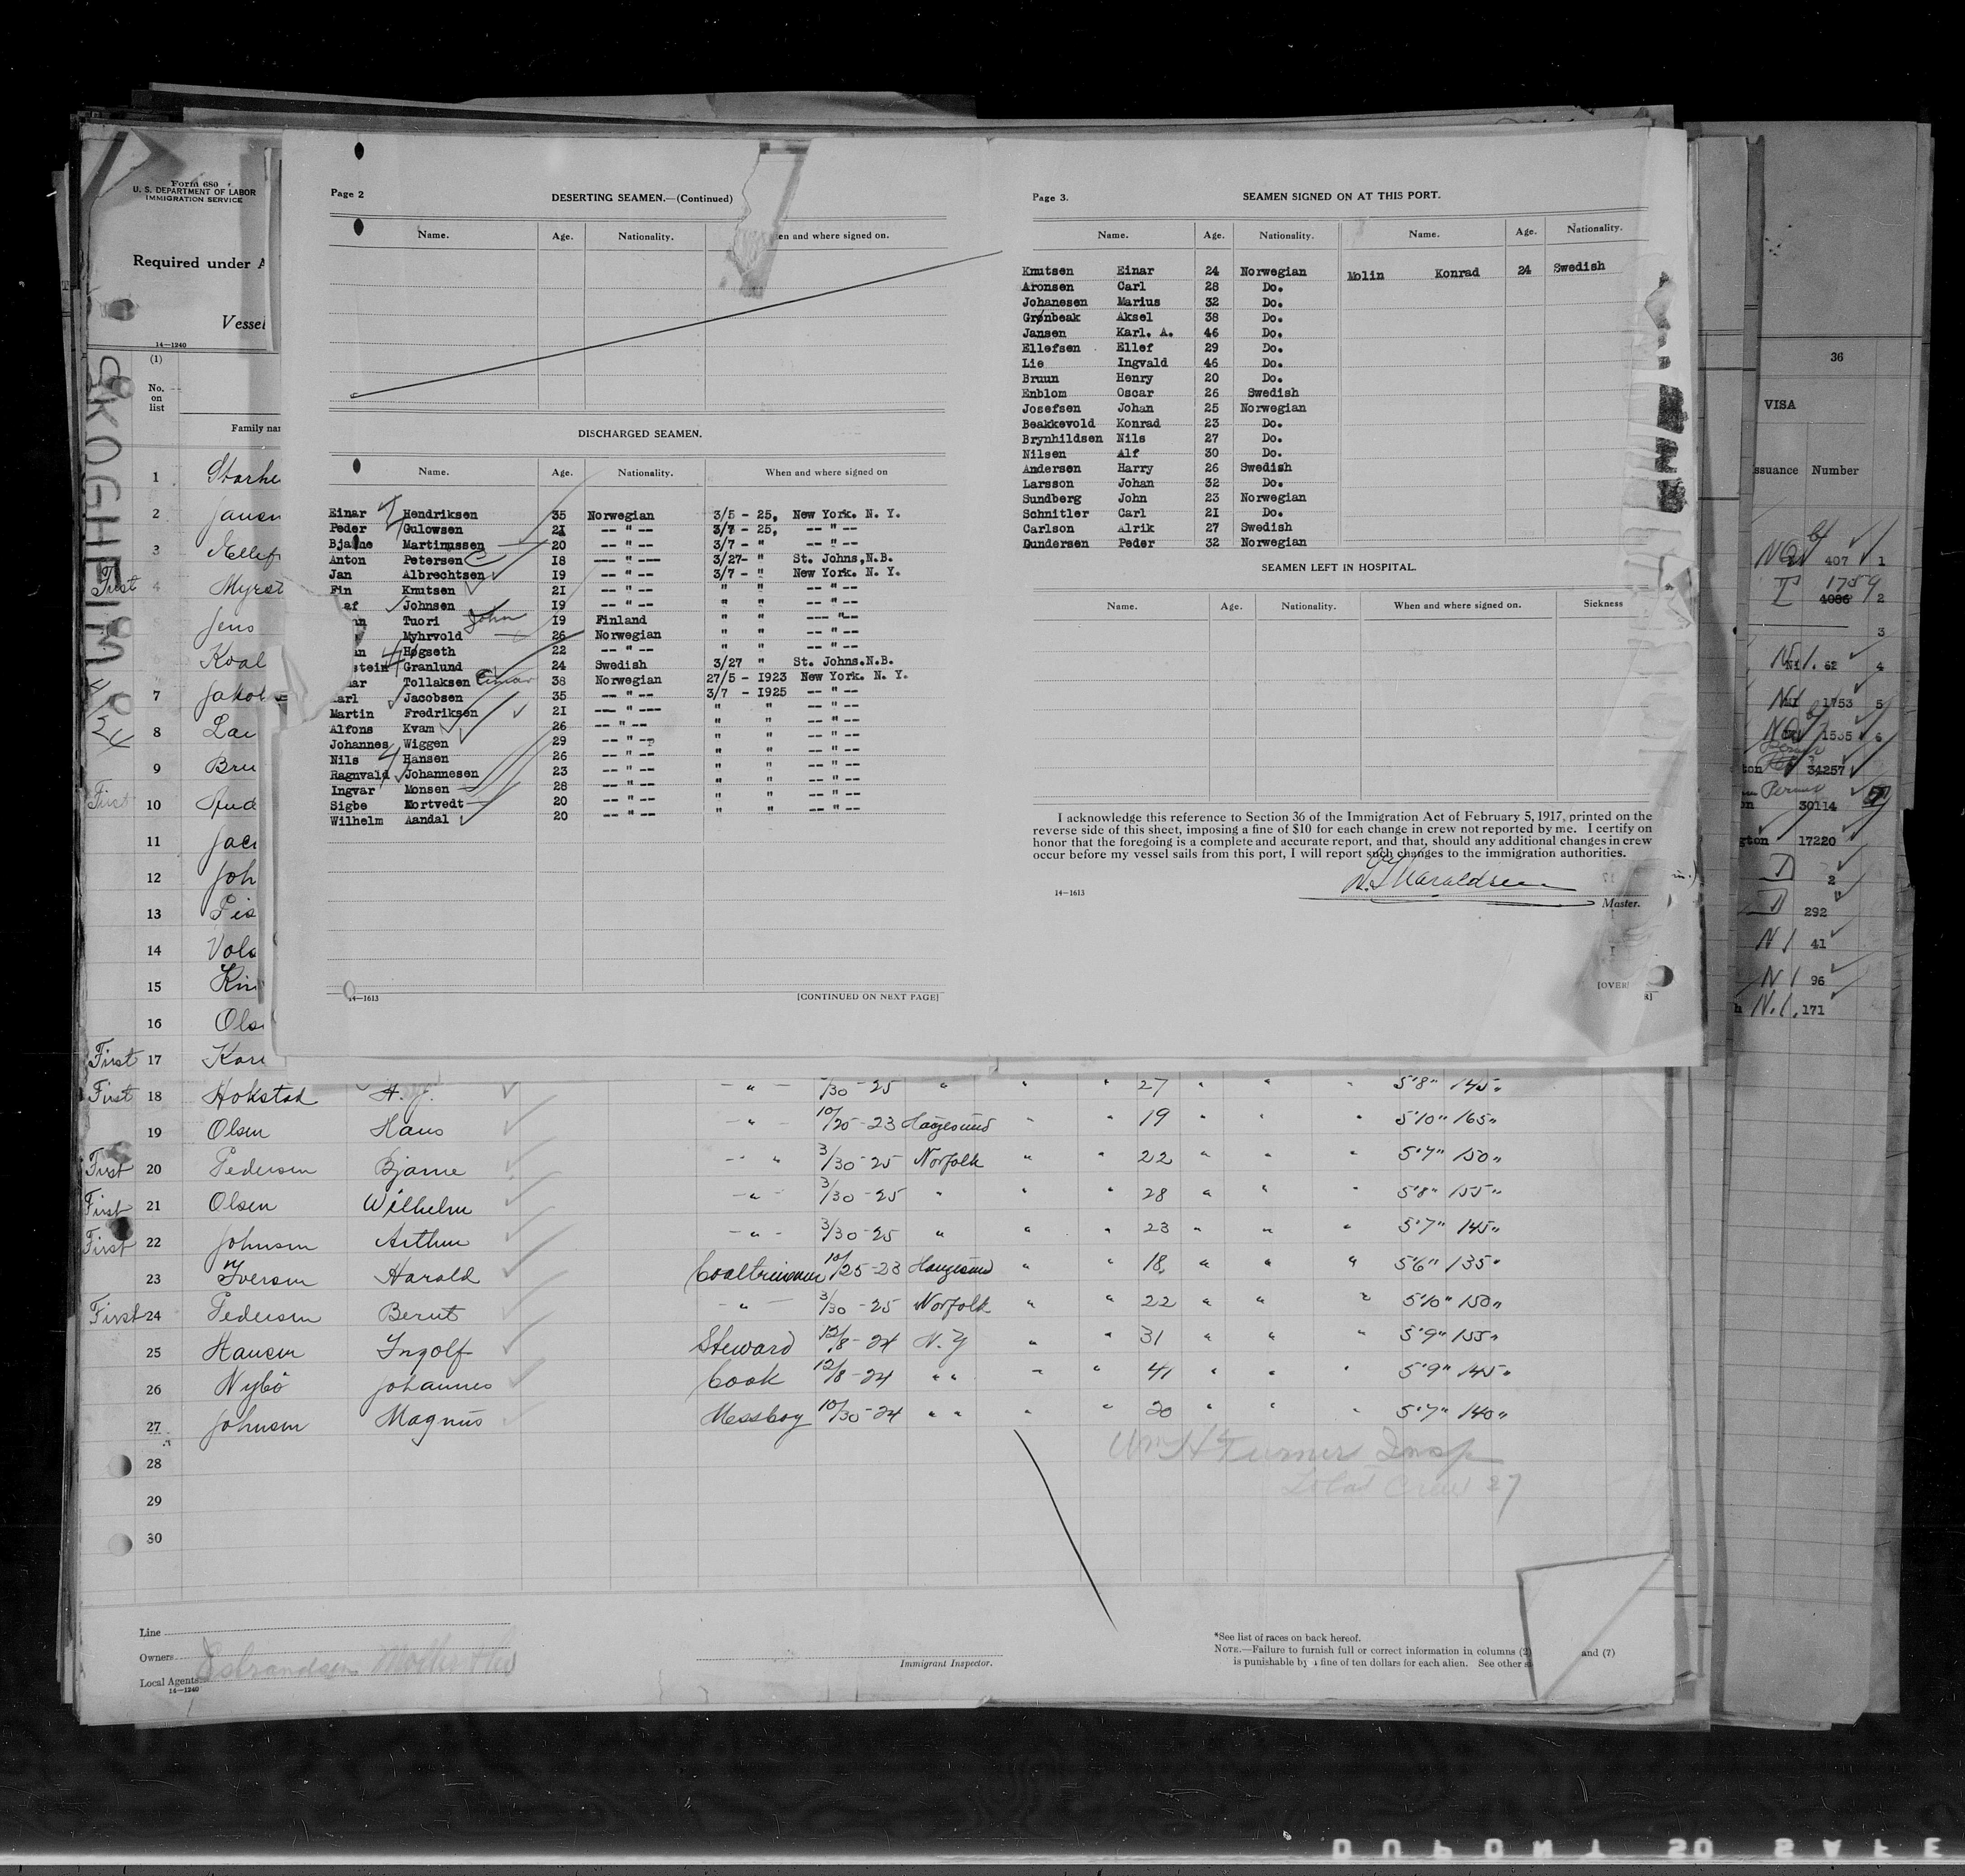 Form 680
U. S. DEPARTMENT OF LABOR
IMMIGRATION SERVICE
Required under A
Vessel
14—1240
(1)
No. on list
Family nam
SKOGHEIM
1
2
3
First 4 Myrst
Jens
7 Jakob
8
9 Bru
First 10
11
12 Joh
13
14
15
16 Ols
First 17
Page 2
DESERTING SEAMEN.—(Continued)
Name. Age. Nationality. en and where signed on.
DISCHARGED SEAMEN.
Name. Age. Nationality. When and where signed on
Einar Hendriksen 35 Norwegian 3/5 - 25, New York. N. Y.
Peder Gulowsen 21 -- " -- 3/7 - 25, -- " --
Bjarne Martinussen 20 -- " -- 3/7 - " -- " --
Anton Petersen 18 --- " -- 3/27- " St. Johns,N.B.
Jan Albrechtsen 19 -- " -- 3/7 - " New York. N. Y.
Fin Knutsen 21 -- " -- " " -- " --
af Johnsen 19 -- " -- " " -- " --
n Tuori John 19 Finland " " --- "--
Myhrvold 26 Norwegian " " -- " --
n Høgseth 22 -- " -- " " -- " --
stein Granlund 24 Swedish 3/27 " St. Johns.N.B.
ar Tollaksen Einar 38 Norwegian 27/5 - 1923 New York. N. Y.
arl Jacobsen 35 -- " -- 3/7 - 1925 -- " --
Martin Fredriksen 21 -- " --- " " -- " --
Alfons Kvam 26 -- " -- " " -- " --
Johannes Wiggen 29 -- " -- " " -- " --
Nils Hansen 26 -- " -- " " -- " --
Ragnvald Johannesen 23 -- " -- " " -- " --
Ingvar Monsen 28 -- " -- " " -- " --
Sigbe Mortvedt 20 -- " -- " " -- " --
Wilhelm Aandal 20 -- " -- " " -- " --
14—1613
[CONTINUED ON NEXT PAGE]
Page 3.
SEAMEN SIGNED ON AT THIS PORT.
Name. Age. Nationality. Name. Age. Nationality.
Knutsen Einar 24 Norwegian Molin Konrad 24 Swedish
Aronsen Carl 28 Do.
Johanesen Marius 32 Do.
Grønbeak Aksel 38 Do.
Jansen Karl. A. 46 Do.
Ellefsen Ellef 29 Do.
Lie Ingvald 46 Do.
Bruun Henry 20 Do.
Enblom Oscar 26 Swedish
Josefsen Johan 25 Norwegian
Beakkevold Konrad 23 Do.
Brynhildsen Nils 27 Do.
Nilsen Alf 30 Do.
Andersen Harry 26 Swedish
Larsson Johan 32 Do.
Sundberg John 23 Norwegian
Schnitler Carl 21 Do.
Carlson Alrik 27 Swedish
Gundersen Peder 32 Norwegian
SEAMEN LEFT IN HOSPITAL.
Name. Age. Nationality. When and where signed on. Sickness
I acknowledge this reference to Section 36 of the Immigration Act of February 5, 1917, printed on the
reverse side of this sheet, imposing a fine of $10 for each change in crew not reported by me. I certify on
honor that the foregoing is a complete and accurate report, and that, should any additional changes in crew
occur before my vessel sails from this port, I will report such changes to the immigration authorities.
14—1613
Haraldsen
Master.
[OVER]
36
VISA
ssuance Number
407 1
1759
4086 2
3
N1. 62 4
N1 1753 5
1535 6
ton 34257
on 30114
gton 17220
D 2
D 292
N1 41
N1 96
N.1. 171
First 18 Hokstad H. J. - " - /30-25 " " " 27 " " " 5'8" 145"
19 Olsen Hans - " - 10/25-23 Haugesund " " 19 " " " 5'10" 165"
First 20 Pedersen Bjarne - " " 3/30-25 Norfolk " " 22 " " " 5'7" 150"
First 21 Olsen Wilhelm - " - 3/30-25 " " " 28 " " " 5'8" 155"
First 22 Johnsen Arthur - " - 3/30-25 " " " 23 " " " 5'7" 145"
23 Iversen Harald Coaltrimmer 10/25-23 Haugesund " " 18 " " " 5'6" 135"
First 24 Pedersen Bernt - " - 3/30-25 Norfolk " " 22 " " " 5'10" 150"
25 Hansen Ingolf Steward 12/8-24 N.Y " " 31 " " " 5'9" 155"
26 Nybö Johannes Cook 12/8-24 " " " " 41 " " " 5'9" 145"
27 Johnsen Magnus Messboy 10/30-24 " " " " 20 " " " 5'7" 140"
28
29
30
Wm H Turner Insp
Total Crew 27
Line
Owners
Local Agents
14—1240
Immigrant Inspector.
*See list of races on back hereof.
NOTE.—Failure to furnish full or correct information in columns (2) and (7)
is punishable by a fine of ten dollars for each alien. See other s